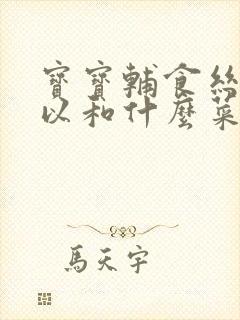 寶寶輔食絲
以和什麼菜
馬天宇